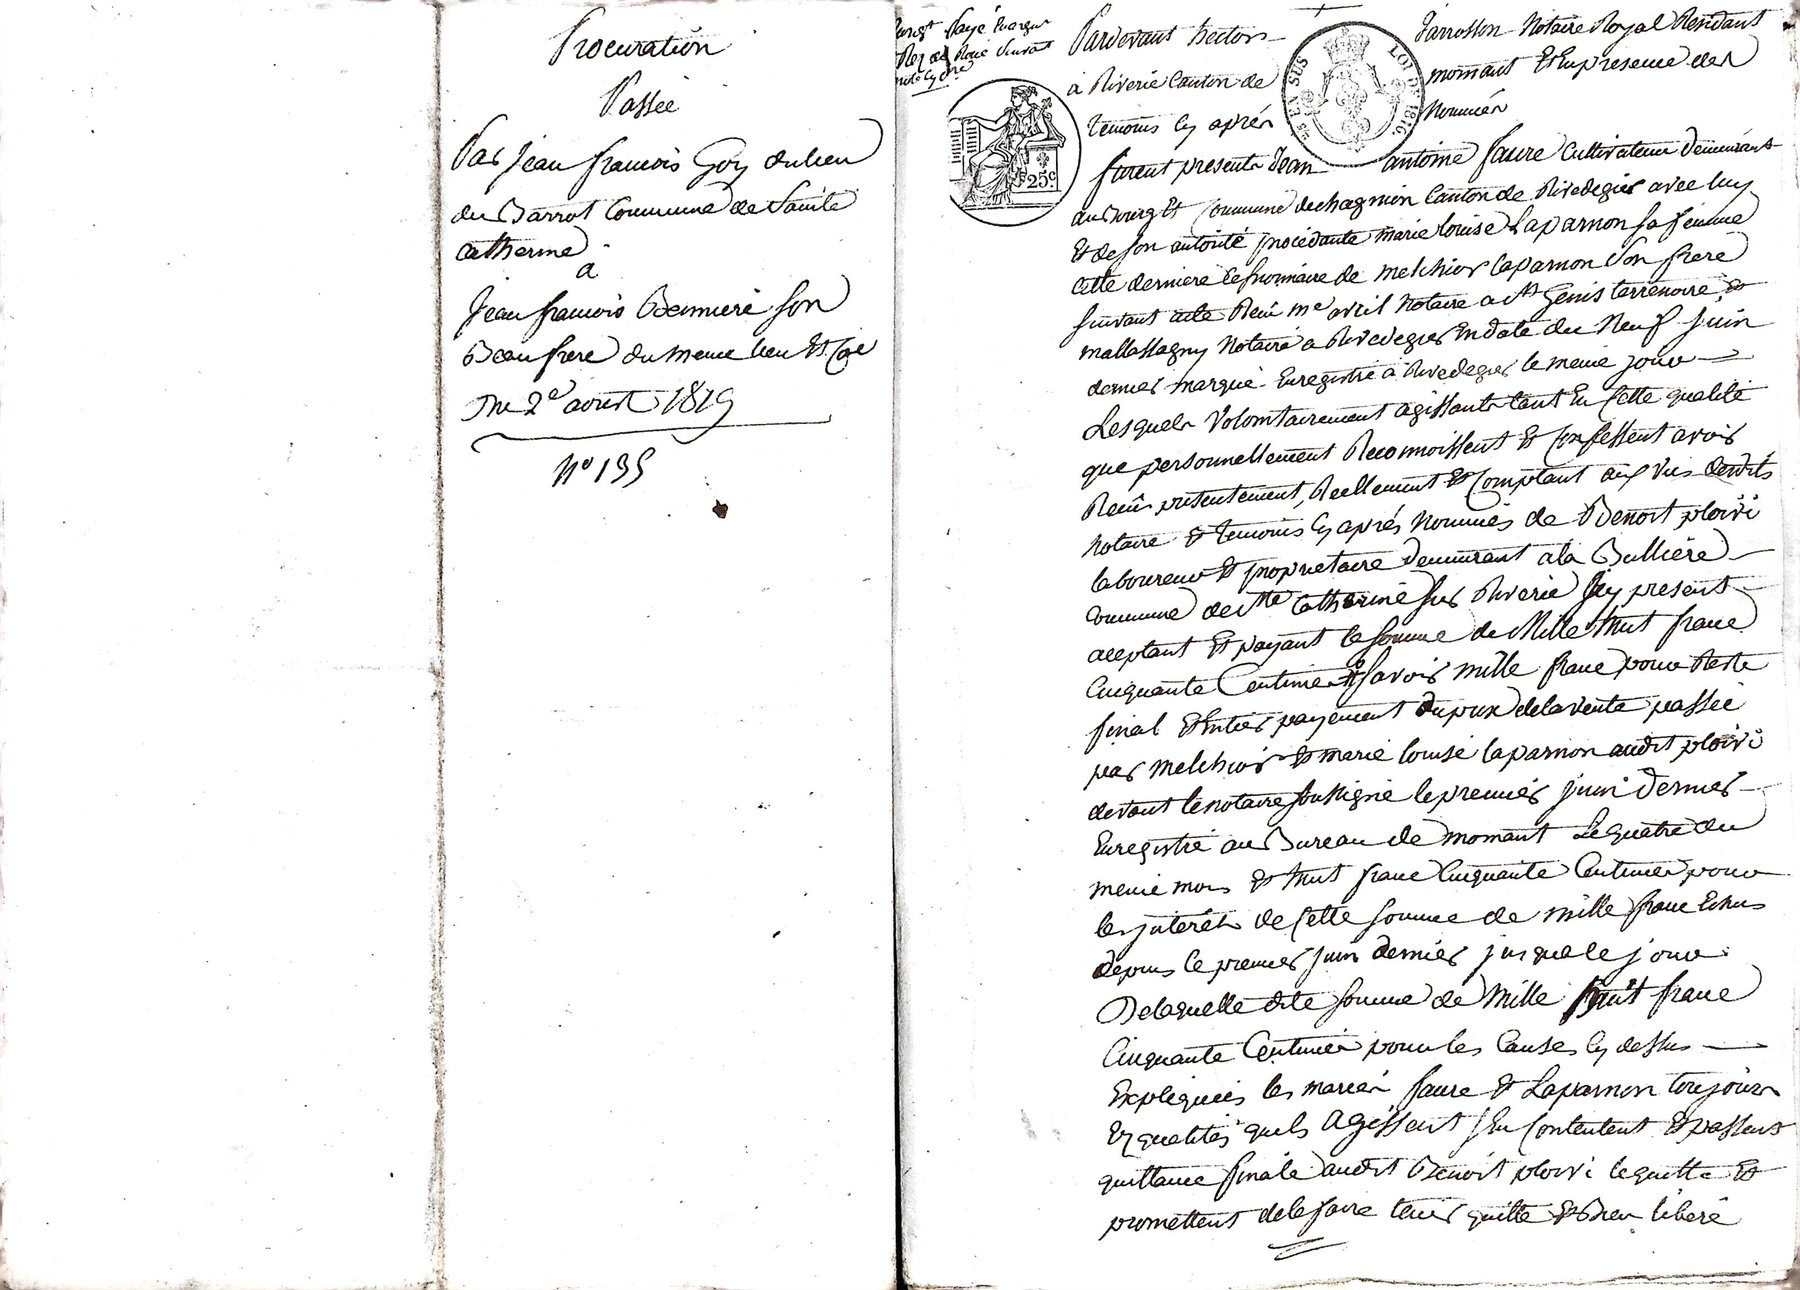 Procuration
Passée
Par Jean francois Goy du lieu
du Barrot Commune de Sainte
Catherine
a
Jean francois Bernniere son
Beaufrere du meme lieu Et Cne
Du 2e aoust 1819
No 135
Pardevant hector Jarrosson Notaire Royal Residant
à Riverie Canton de mornant Et Enpresence des
temoins cy aprés Nommés
furent presents Jean antoine faure Cultivateur demeurant
au Bourg Et Commune de chagnion Canton de Rivedegier avec luy
Et de son autorité procedante marie louise Laparnon sa femme
Cette derniere Cessionnaire de melchior Laparnon son frere
suivant acte Recu me avril Notaire a st Genis terrenoire, Et
mallassagny Notaire a Rivedegier En date du Neuf Juin
dernier marqué Enregistré à Rivedegier le meme jour
Lesquels Volontairement agissants tant En Cette qualité
que personnellement Reconnoissent Et Confessent avoir
Recu presentement, Reellement Et Comptant aux vus desdits
Notaire Et temoins Cy aprés Nommés de Benoit ploivi
laboureur Et proprietaire demeurant a la Bullière
Commune de ste Catherine sur Riverie Icy present
aceptant Et payant la somme de Mille huit franc
Cinquante Centimes Savoir mille franc pour Reste
final Et Entier payement du prix de la vente passée
par Melchior Et marie louise laparnon audit ploivi
devant le notaire soussigné le premier Juin dernier
Enregistré au Bureau de mornant Le quatre du
meme mois Et huit franc Cinquante Centimes pour
les jnterets de Cette somme de mille franc Echus
depuis le premier Juin dernier jusque le jour
De laquelle dite somme de Mille huit franc
Cinquante Centimes pour les Causes Cy dessus
Expliquées les mariés faure Et Laparnon toujours
Ez qualités quils agissent sEn Contentent Et passent
quittance finale audit Benoit ploivi le quitte Et
promettent de le faire tenir quitte Et Bien libéré
25c
EN SUS
LOI DE 1816.